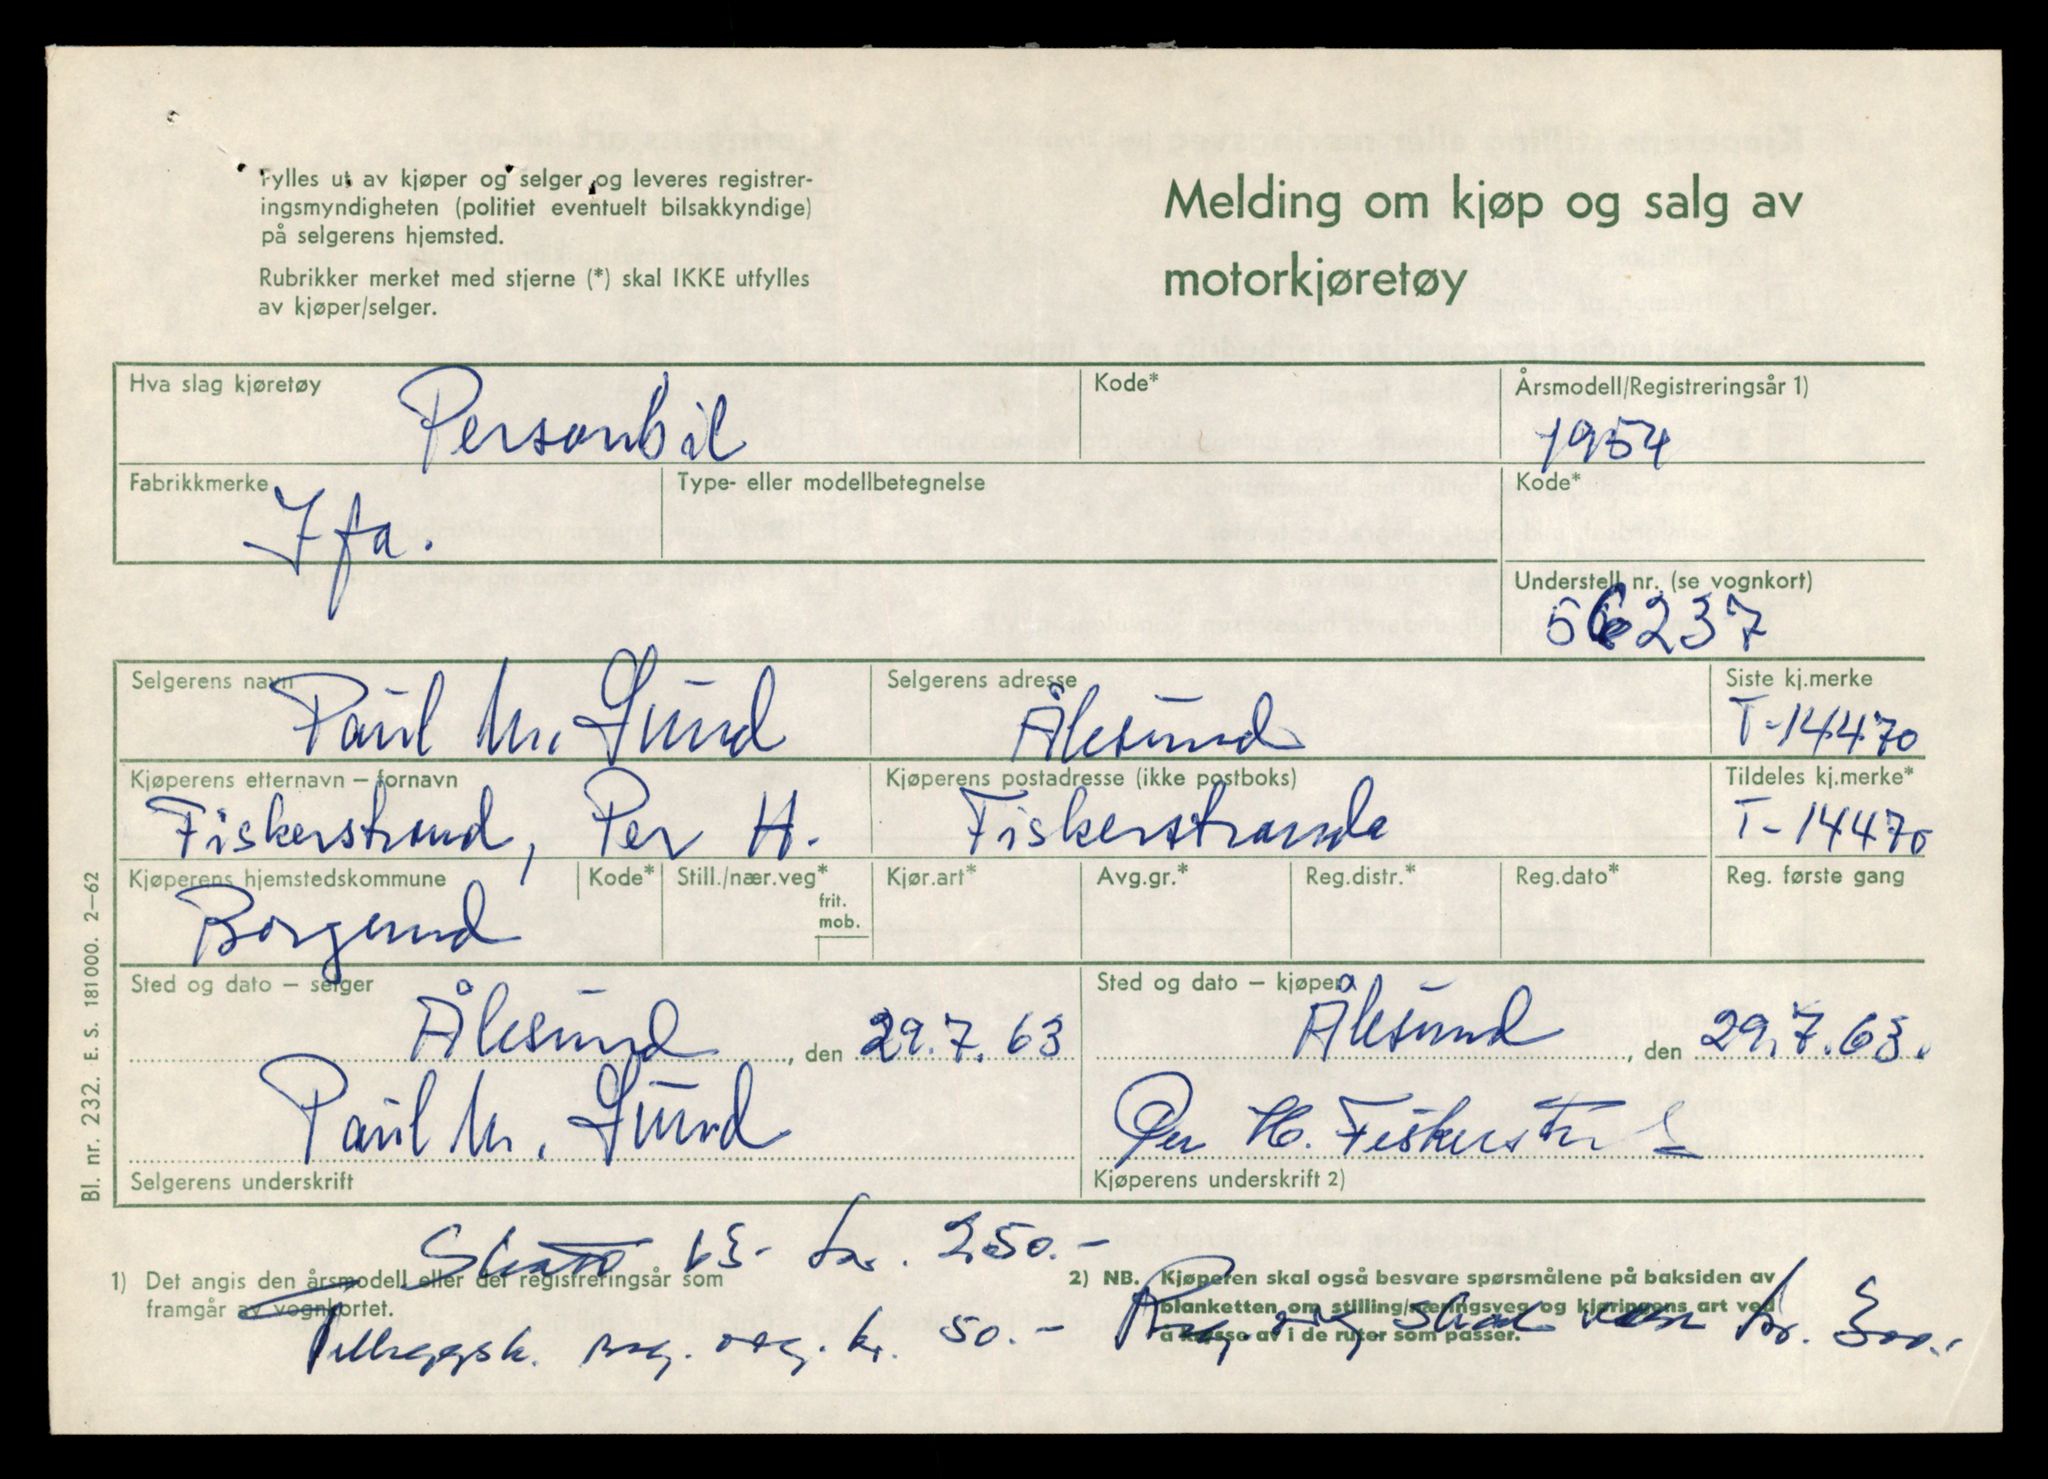 Fylles ut av kjøper og selger og leveres registrer-
ingsmyndigheten (politiet eventuelt bilsakkyndige)
på selgerens hjemsted.
Rubrikker merket med stjerne (*) skal IKKE utfylles
av kjøper/selger.
Melding om kjøp og salg av
motorkjøretøy
Hva slag kjøretøy Personbil
Kode*
Årsmodell/Registreringsår 1) 1954
Fabrikkmerke Ifa.
Type- eller modellbetegnelse
Kode*
Understell nr. (se vognkort)
56237
Selgerens navn Paul M. Lund
Selgerens adresse Ålesund
Siste kj.merke T-14470
Kjøperens etternavn – fornavn
Fiskerstrand, Per H.
Kjøperens postadresse (ikke postboks)
Fiskerstranda
Tildeles kj.merke*
T-14470
Kjøperens hjemstedskommune Borgund
Kode*
Still./nær.veg*
frit.
mob.
Kjør.art*
Avg.gr.*
Reg.distr.*
Reg.dato*
Reg. første gang
Sted og dato – selger
Ålesund, den 29.7.63
Paul M. Lund
Selgerens underskrift
Sted og dato – kjøper
Ålesund, den 29.7.63.
Per H. Fiskerstrand
Kjøperens underskrift 2)
63- kr. 250.-
1) Det angis den årsmodell eller det registreringsår som
framgår av vognkortet.
2) NB. Kjøperen skal også besvare spørsmålene på baksiden av
blanketten om stilling/næringsveg og kjøringens art ved
å krysse av i de ruter som passer.
Tilleggsk. kr. 50.- kr. 300.-
Bl. nr. 232. E. S. 181 000. 2–62